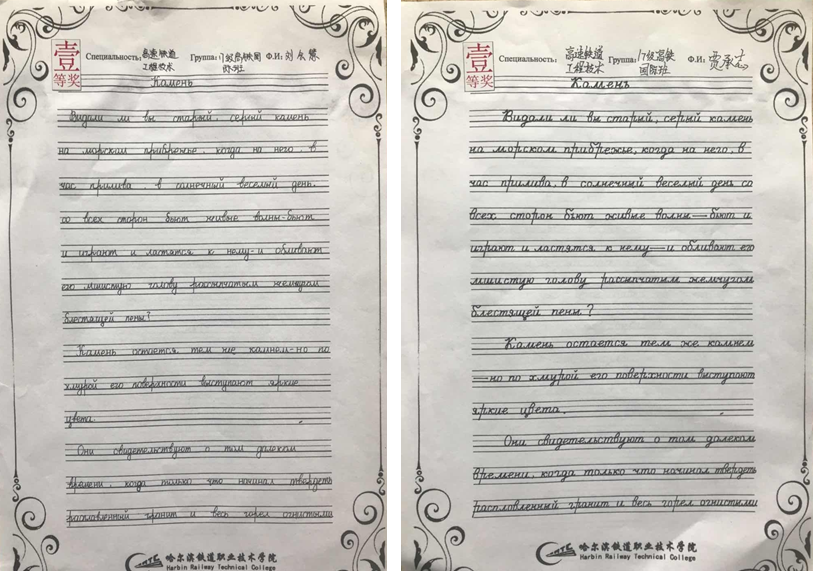 壹
等奖
Специальность: 高速铁道
工程技术
Группа: 17级高铁国
际班
Ф.И: 刘
Камень
Видали ли вы старый, серый камень
на морском прибрежье, когда на него, в
час прилива, в солнечный веселый день,
со всех сторон бьют живые волны-бьют
и играют и ластятся к нему-и обливают
его мшистую голову рассыпчатым жемчугом
блестящей пены?
Камень остается тем же камнем-но по
хмурой его поверхности выступают яркие
цвета.
Они свидетельствуют о том далеком
времени, когда только что начинал твердеть
расплавленный гранит и весь горел огнистыми
哈尔滨铁道职业技术学院
Harbin Railway Technical College
壹
等奖
Специальность: 高速铁道
工程技术
Группа: 17级高铁
国际班
Ф.И: 贾承志
Камень
Видали ли вы старый, серый камень
на морском прибрежье, когда на него, в
час прилива, в солнечный веселый день со
всех сторон бьют живые волны—бьют и
играют и ластятся к нему—и обливают его
мшистую голову рассыпчатым жемчугом
блестящей пены?
Камень остается тем же камнем
—но по хмурой его поверхности выступают
яркие цвета.
Они свидетельствуют о том далеком
времени, когда только что начинал твердеть
расплавленный гранит и весь горел огнистыми
哈尔滨铁道职业技术学院
Harbin Railway Technical College